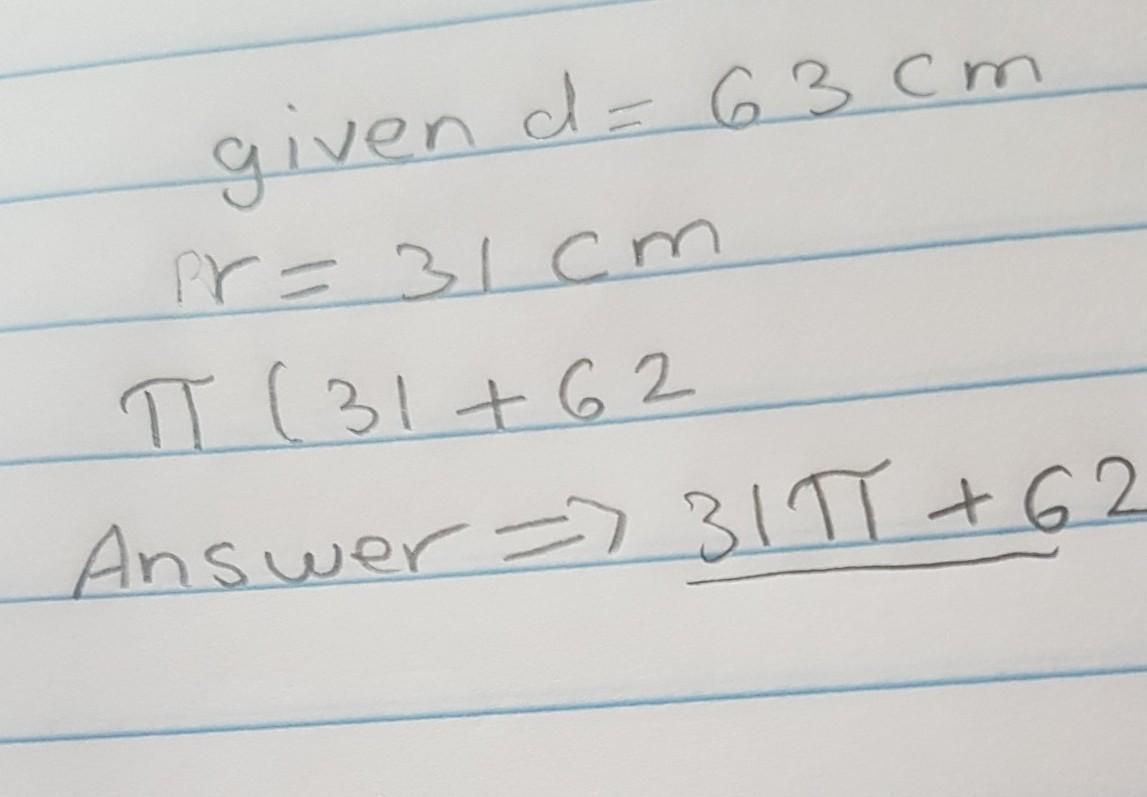 given d = 63 cm
r = 31 cm
π ( 31 + 62
Answer => 31π + 62